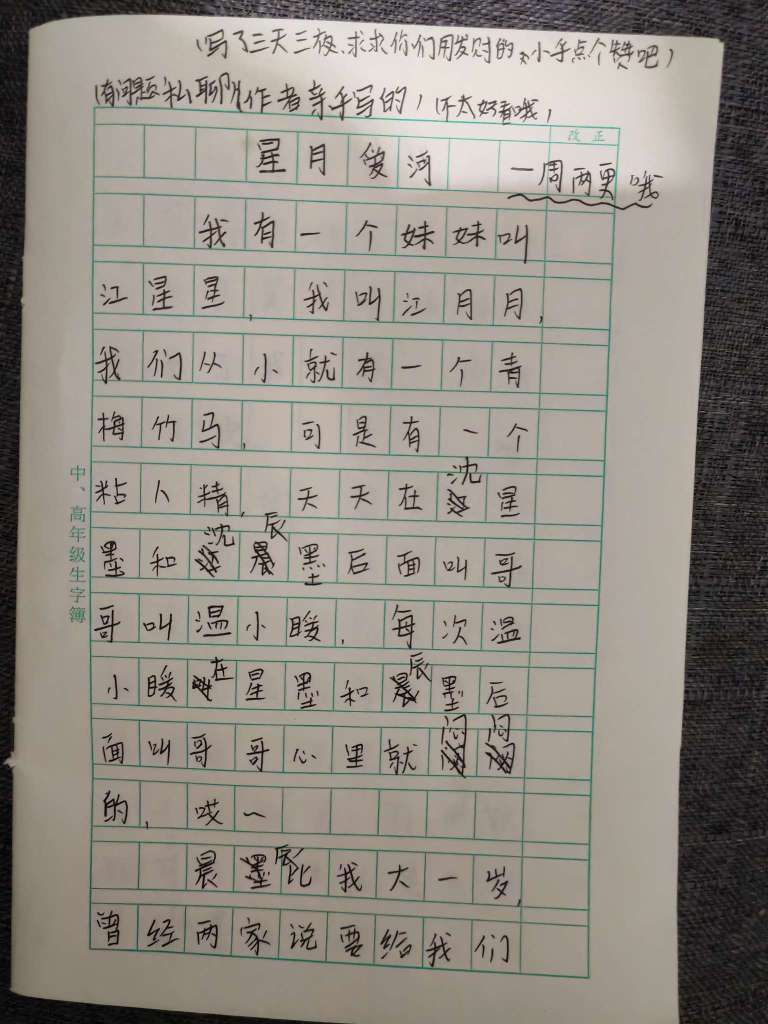 (写了三天三夜、求求你们用发财的小手点个赞吧)
(有问题私聊)作者亲手写的,(不太好看哦)
改正
星月爱河 一周两更哦
我有一个妹妹叫
江星星,我叫江月月,
我们从小就有一个青
梅竹马,可是有一个
粘人精,天天在沈星
墨和沈辰墨后面叫哥
哥叫温小暖,每次温
小暖在星墨和辰墨后
面叫哥哥心里就闷闷
的,哎~
晨墨比我大一岁,
曾经两家说要给我们
中、高年级生字簿